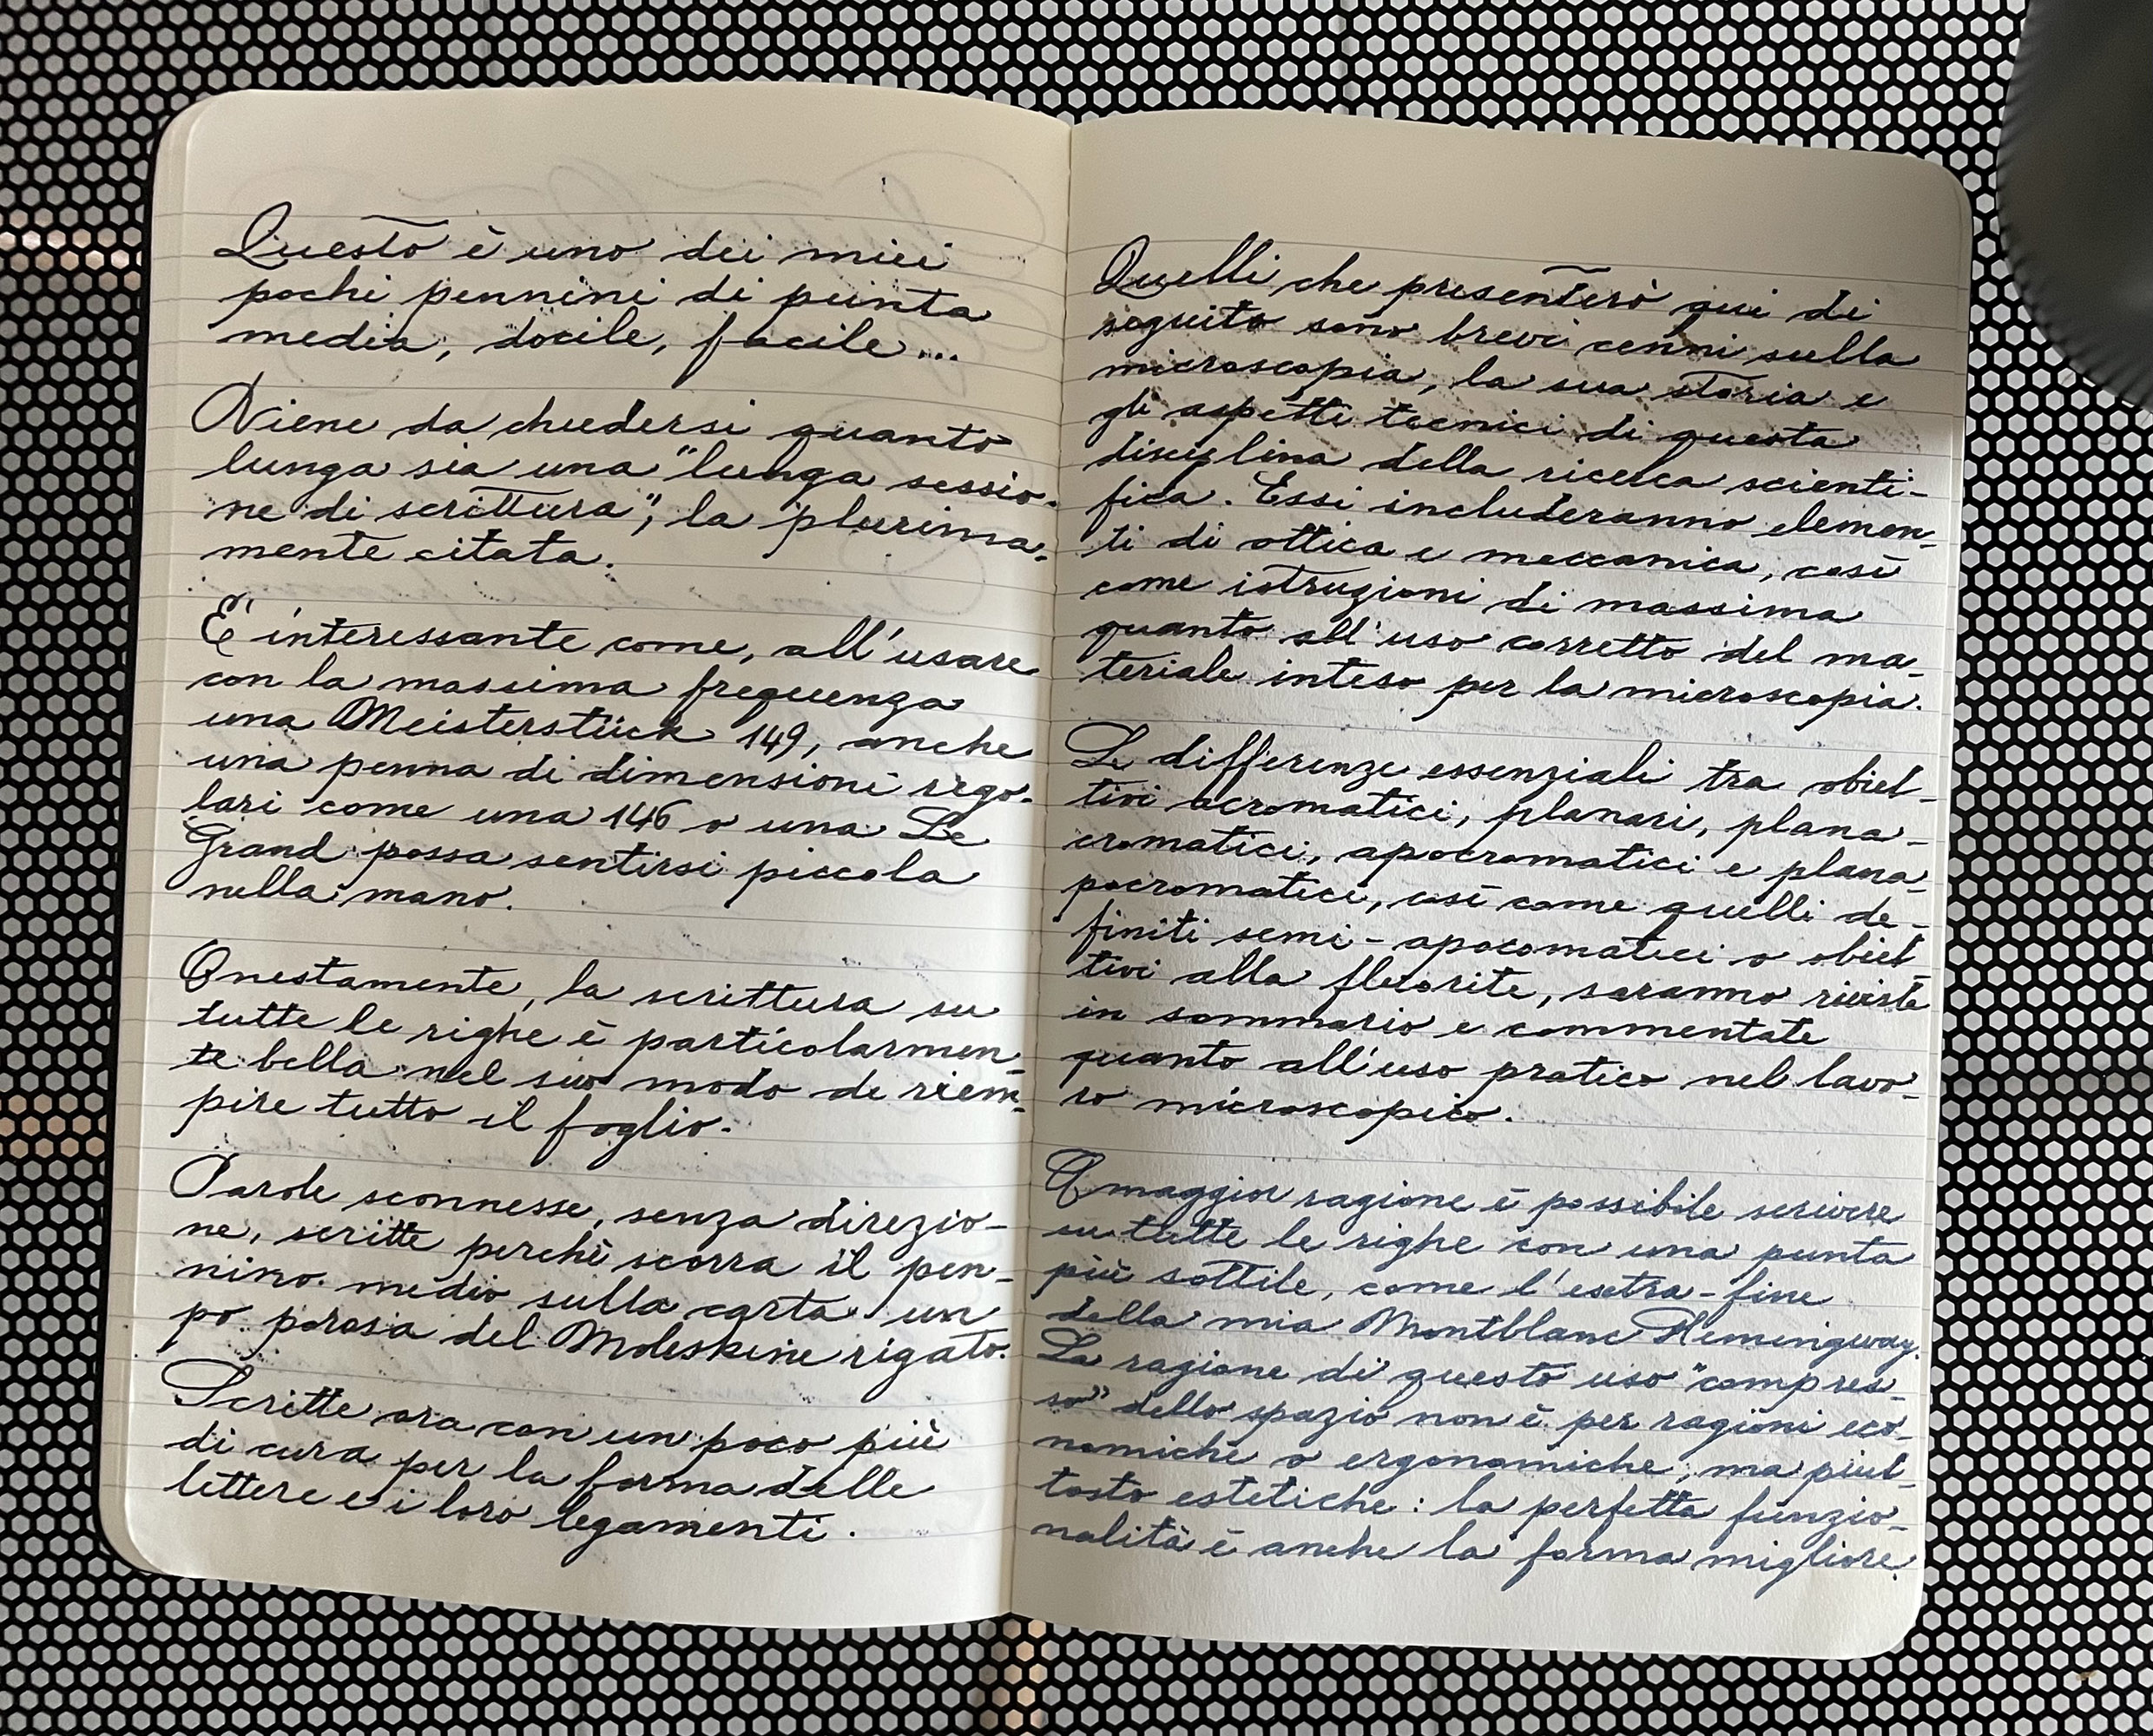 Questo è uno dei miei
pochi pennini di punta
media, docile, facile...
Viene da chiedersi quanto
lunga sia una "lunga sessio-
ne di scrittura", la plurima-
mente citata.
E' interessante come, all'usare
con la massima frequenza
una Meisterstück 149, anche
una penna di dimensioni rego-
lari come una 146 o una Le
Grand possa sentirsi piccola
nella mano.
Onestamente, la scrittura su
tutte le righe è particolarmen-
te bella nel suo modo di riem-
pire tutto il foglio.
Parole sconnesse, senza direzio-
ne, scritte perché scorra il pen-
nino medio sulla carta un
po porosa del Moleskine rigato.
Scritte ora con un poco più
di cura per la forma delle
lettere e i loro legamenti.
Quelli che presenterò qui di
seguito sono brevi cenni sulla
microscopia, la sua storia e
gli aspetti tecnici di questa
disciplina della ricerca scienti-
fica. Essi includeranno elemen-
ti di ottica e meccanica, così
come istruzioni di massima
quanto all'uso corretto del ma-
teriale inteso per la microscopia.
Le differenze essenziali tra obiet-
tivi acromatici, planari, plana-
cromatici, apocromatici e plana-
pocromatici, così come quelli de-
finiti semi-apocomatici o obiet
tivi alla fluorite, saranno riviste
in sommario e commentate
quanto all'uso pratico nel lavo-
ro microscopico.
A maggior ragione è possibile scrivere
su tutte le righe con una punta
più sottile, come l'esetra-fine
della mia Montblanc Hemingway.
La ragione di questo uso "compres-
so" dello spazio non è per ragioni eco-
nomiche o ergonomiche, ma piut-
tosto estetiche: la perfetta funzio-
nalità è anche la forma migliore.